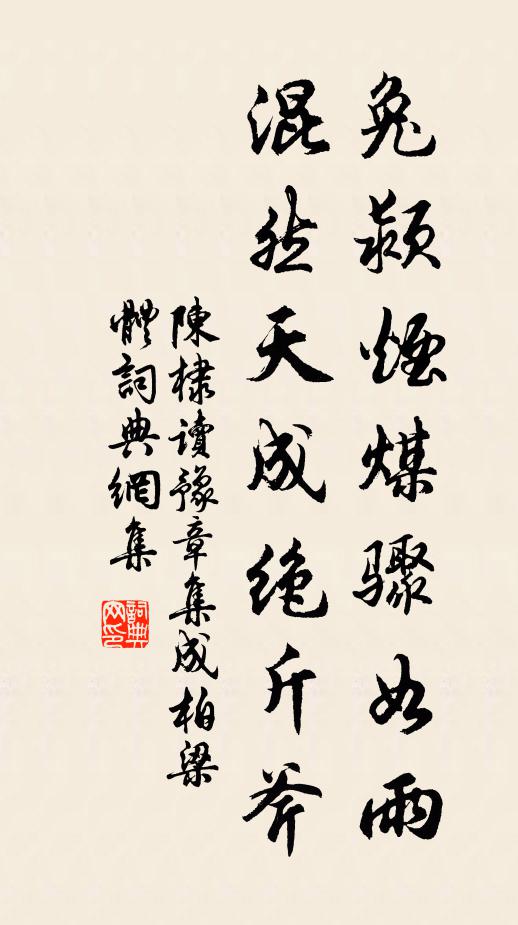 兔潁煙煤驟如雨
混然天成絕斤斧
陳棣讀豫章集成柏梁
體詞典網集
詞典
网印